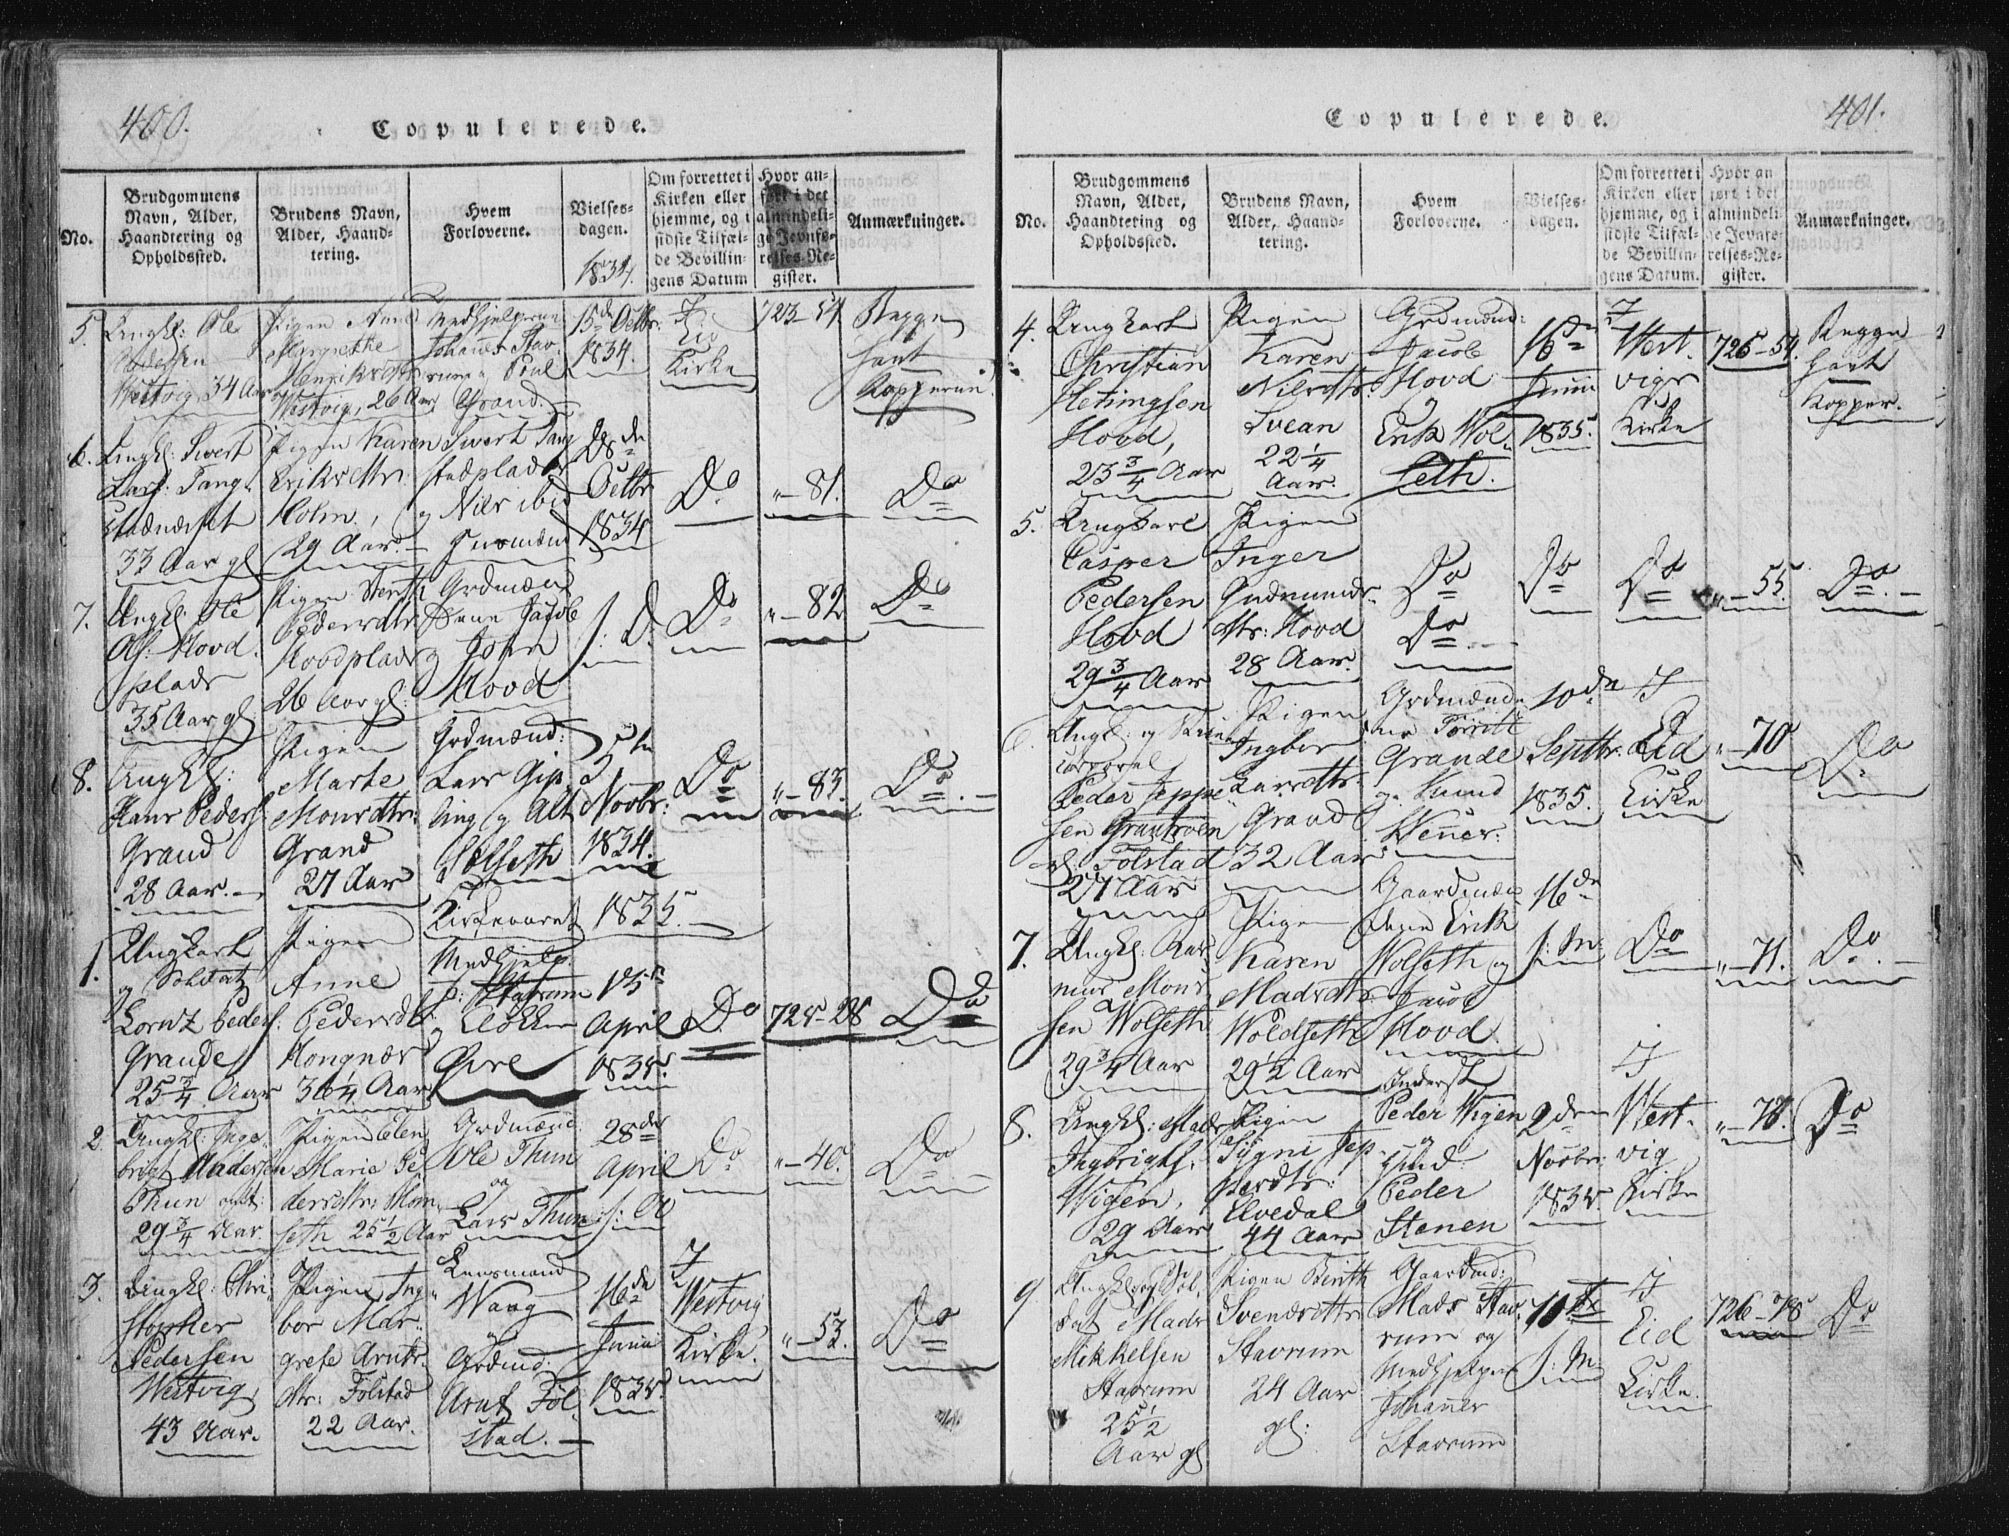 400.
Copulerede.
No.
Brudgommens
Navn, Alder,
Haandtering og
Opholdssted.
Brudens Navn,
Alder, Haand-
tering.
Hvem
Forloverne.
Vielses-
dagen.
1834.
Om forrettet i
Kirken eller
hjemme, og i
sidste Tilfæl-
de Bevillin-
gens Datum
Hvor an-
ført i det
almindeli-
ge Jevnfø-
relses-Re-
gister.
Anmærkninger.
5.
Ungk: Ole
Westvig, 34 Aar
Pigen
Margrethe
Henriksdtr
Westvig, 26 Aar
Medhjelperne
Johannes Stav-
rum, Poul
Grand.
15de Octbr:
1834.
I
Kirke
723-54
Begge
havt
Kopperne.
6.
Ungk: Siwert
Lars: Tang-
33 Aar gl
Pigen Karen
Eriksdtr:
Holm,
29 Aar.
Siwert Tang
stadplads
og Niels ibid
28de
Octbr
1834
Do
"-81.
Do
7.
Ungk: Ole
Ol: Hovd-
plads
35 Aar gl
Pigen
Pedersdtr
Hovdplads
26 Aar gl:
Grdmæn
dene Jacob
og John
Hovd
s: D.
Do
"-82
Do
8.
Ungk:
Hans Peders:
Grand
28 Aar.
Pigen
Marte
Monsdtr:
Grand
27 Aar
Grdmænd:
Lars Gip-
ling og Alt
Solseth
5te
Novbr:
1834.
Do
"-83.
Do
Kirkeaaret 1835
1.
Ungkarl
og Soldat
Lorntz Peders:
Grande
25 3/4 Aar
Pigen
Anne
Pedersdtr
Hongnæs
36 1/4 Aar
Medhjelp-
: Stavrum
og
15de
April
1835.
Do
725-28
Do
2.
Ungk: Inge-
brigt Andersen
Thun
29 3/4 Aar
Pigen Elen
Marie Pe-
dersdtr:
seth 25 1/2 Aar
Grdmænd:
Ole Thun
og
Lars Thun
28de
April
s: A
Do
"-40.
Do
3.
Ungk: Chri-
stopher
Pedersen
Westvig
43 Aar.
Pigen Ing-
bor Mar-
grete Arnts-
dtr: Folstad
22 Aar.
Lensmand
Waag
og
Grdmd:
Arnt Fol-
stad.
16de
Junii
1835.
I
Westvig
Kirke.
"-53.
Do
401.
Copulerede.
No.
Brudgommens
Navn, Alder,
Haandtering og
Opholdssted.
Brudens Navn,
Alder, Haand-
tering.
Hvem
Forloverne.
Vielses-
dagen.
Om forrettet i
Kirken eller
hjemme, og i
sidste Tilfæl-
de Bevillin-
gens Datum.
Hvor an
ført i det
almindeli-
ge Jevnfø-
relses-Re-
gister.
Anmærkninger.
4.
Ungkarl
Christian
Hemingsen
Hovd,
23 3/4 Aar
Pigen
Karen
Nilsdtr:
Svean
22 1/4
Aar.
Grdmænd:
Jacob
Hovd
og
Erik Wol-
seth.
16de
Junii
1835.
I
West-
vigs
Kirke
725-54.
Begge
havt
Kopper.
5.
Ungkarl
Casper
Pedersen
Hovd
29 3/4 Aar
Pigen
Inger
Gudmunds-
dtr: Hovd
28 Aar.
Do
Do
Do
Do
"-55.
Do
6.
Ungk: og
corporal
Peder Jeppe-
sen
Folstad
27 Aar
Pigen
Ingbor
Larsdtr:
Grand
32 Aar
Grdmænde-
ne
Grande
og Knud
10de
Septbr:
1835.
I
Eid
Kirke
"-70
Do
7.
Ungk: Ras-
mus Mons-
sen Wolseth
29 3/4 Aar
Pigen
Karen
Madsdtr:
Woldseth
29 1/2 Aar
Gaardmæn-
dene Erik
Wolseth og
Jacob
Hovd.
16de
s: m:
Do
"-71.
Do
8.
Ungk: Mads
Ingbrigts:
Wigen,
29 Aar
Pigen
Signi Jep-
Elvedal
44 Aar
Inderst
Peder Wigen
og
Peder
Stenen
2den
Novbr:
1835.
I
West-
vig
Kirke
"-78.
Do
9
Ungk: og Sol-
dat Mads
Mikkelsen
Stavrum
25 1/2
Aar gl
Pigen Berith
Svendsdtr
Stavrum
24 Aar
gl:
Gaardmd:
Mads Stav-
rum og
Medhjelper
Johannes
Stavrum
10de
s: m
I
Eid
Kirke.
726-78
Do